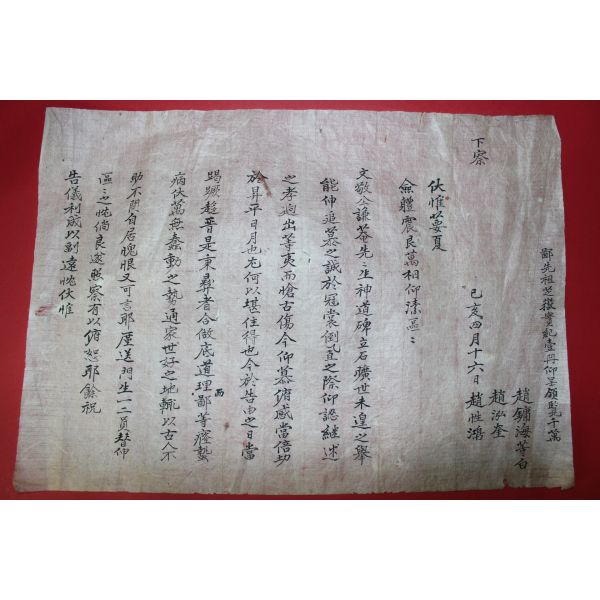 伏惟 夏
僉體震艮萬相仰溸區〻
文敬公謙菴先〻生神道碑立石曠世未遑之擧
能伸追慕之誠於冠裳倒 之際仰認継述
之孝逈出等夷而愴古傷今仰慕俯感當倍切
於昇平日月也尤何以堪住得也今於告由之日當
蹶趍晉是秉彛者合做底道理鄙等 蟄
病伏萬無蠢動之勢通家世好之地輒以古人不
助不聞自居愧恨又可言耶厪送門生一二員替仰
區〻之忱倘良遂照察有以俯恕耶餘祝
告儀利成以副遠忱伏惟
下察
己亥四月十六日 趙性鴻
趙泓奎
趙鏞海等白
鄙先祖芝 實紀壹冊仰呈領覽千萬